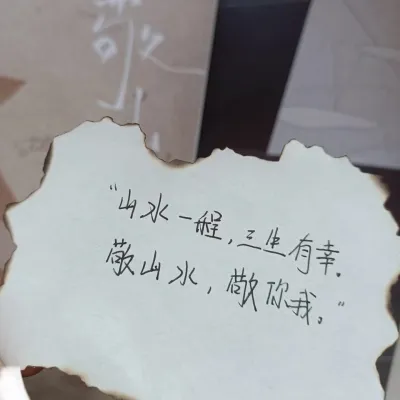 敬山
“山水一程，三生有幸.
敬山水，敬你我。”